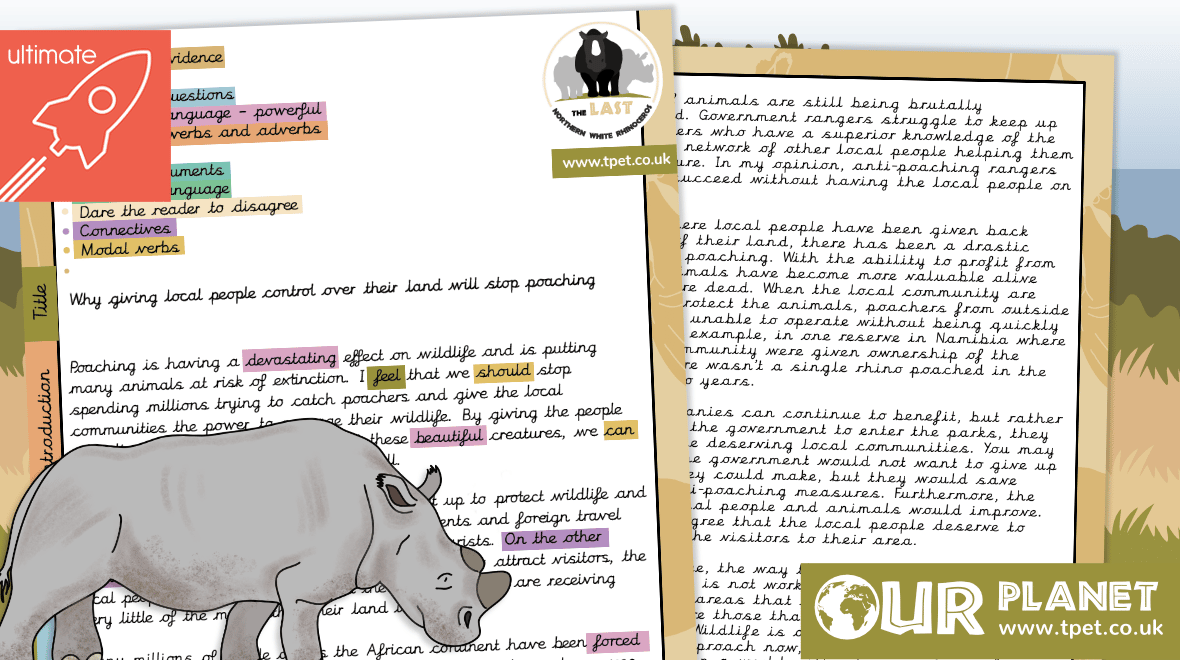 ultimate
vidence
uestions
anguage - powerful
verbs and adverbs
uments
anguage
Dare the reader to disagree
Connectives
Modal verbs
THE LAST
NORTHERN WHITE RHINOCEROS
www.tpet.co.uk
Title
Why giving local people control over their land will stop poaching
ntroduction
Poaching is having a devastating effect on wildlife and is putting
many animals at risk of extinction. I feel that we should stop
spending millions trying to catch poachers and give the local
communities the power to ge their wildlife. By giving the people
these beautiful creatures, we can
ll.
t up to protect wildlife and
ents and foreign travel
rists. On the other
attract visitors, the
are receiving
cal pe
ery little of the m heir land
ny millions of the African continent have been forced
animals are still being brutally
d. Government rangers struggle to keep up
ers who have a superior knowledge of the
network of other local people helping them
ure. In my opinion, anti-poaching rangers
succeed without having the local people on
ere local people have been given back
f their land, there has been a drastic
poaching. With the ability to profit from
imals have become more valuable alive
re dead. When the local community are
rotect the animals, poachers from outside
unable to operate without being quickly
example, in one reserve in Namibia where
mmunity were given ownership of the
re wasn't a single rhino poached in the
o years.
anies can continue to benefit, but rather
the government to enter the parks, they
e deserving local communities. You may
e government would not want to give up
ey could make, but they would save
i-poaching measures. Furthermore, the
al people and animals would improve.
gree that the local people deserve to
he visitors to their area.
e, the way
is not work
areas that
re those tha
Wildlife is
proach now,
OUR PLANET
www.tpet.co.uk